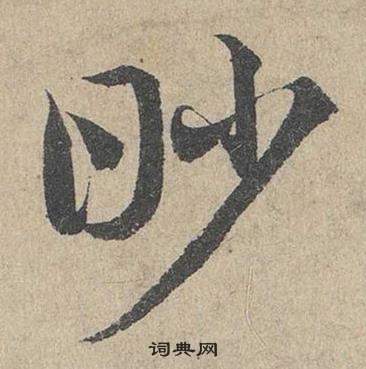 眇
词典网